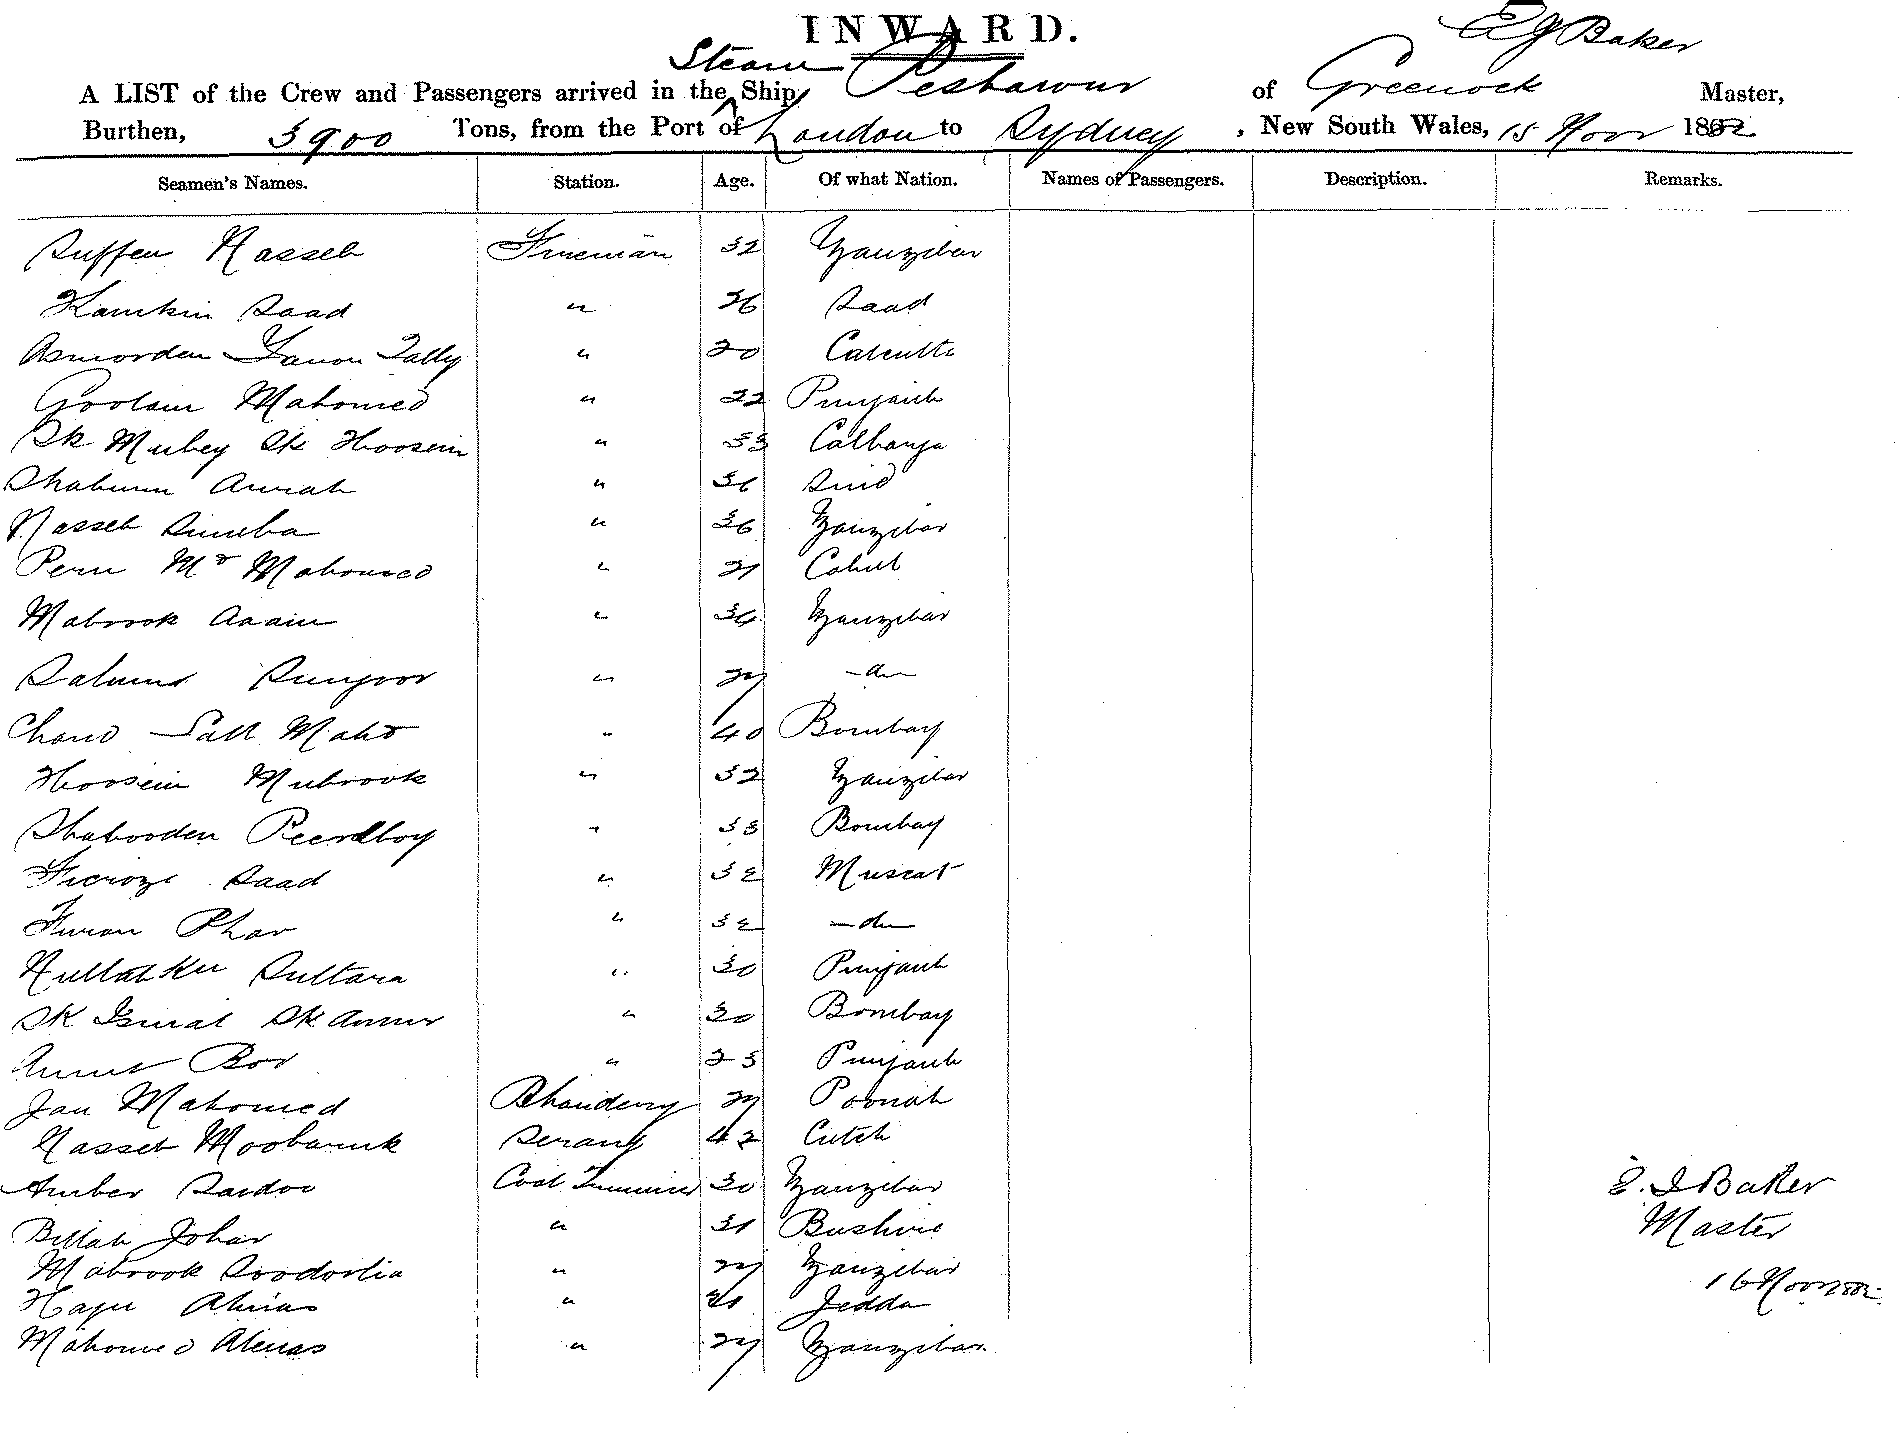 INWARD.
E J Baker
A LIST of the Crew and Passengers arrived in the Steam Ship Peshawur of Greenock Master,
Burthen, 3900 Tons, from the Port of London to Sydney, New South Wales, 15 Novr 1882
Seamen's Names. Station. Age. Of what Nation. Names of Passengers. Description. Remarks.
Suffen Nasseb Fireman 32 Zanzibar
Kamkin Saad " 26 Saad
Asmorden Tally " 20 Calcutta
Goolam Mahomed " 22 Punjaub
Sk Mubey Sk Hoosein " 33
Shabunn " 36 Sind
Nasseb Simba " 36 Zanzibar
Peru Md Mahomed " 21 Cabul
Mabrook " 34 Zanzibar
Salume " 27 — do —
Chand Mahd " 40 Bombay
Hoosein Mubrook " 32 Zanzibar
Shabooden " 33 Bombay
Feroze Saad " 32 Muscat
Furan Phar " 32 — do —
Sultara " 30 Punjaub
Sk Ismal Sk " 30 Bombay
" 23 Punjaub
Jan Mahomed Bhandery 27 Poonah
Nasseb Moobaruk Serang 42 Cutch
Amber Coal Trimmer 30 Zanzibar
Billah Johar " 31
Mabrook " 27 Zanzibar
Almas " Jedda
Mahomed Almas " 27 Zanzibar
E. J Baker
Master
16 Nov